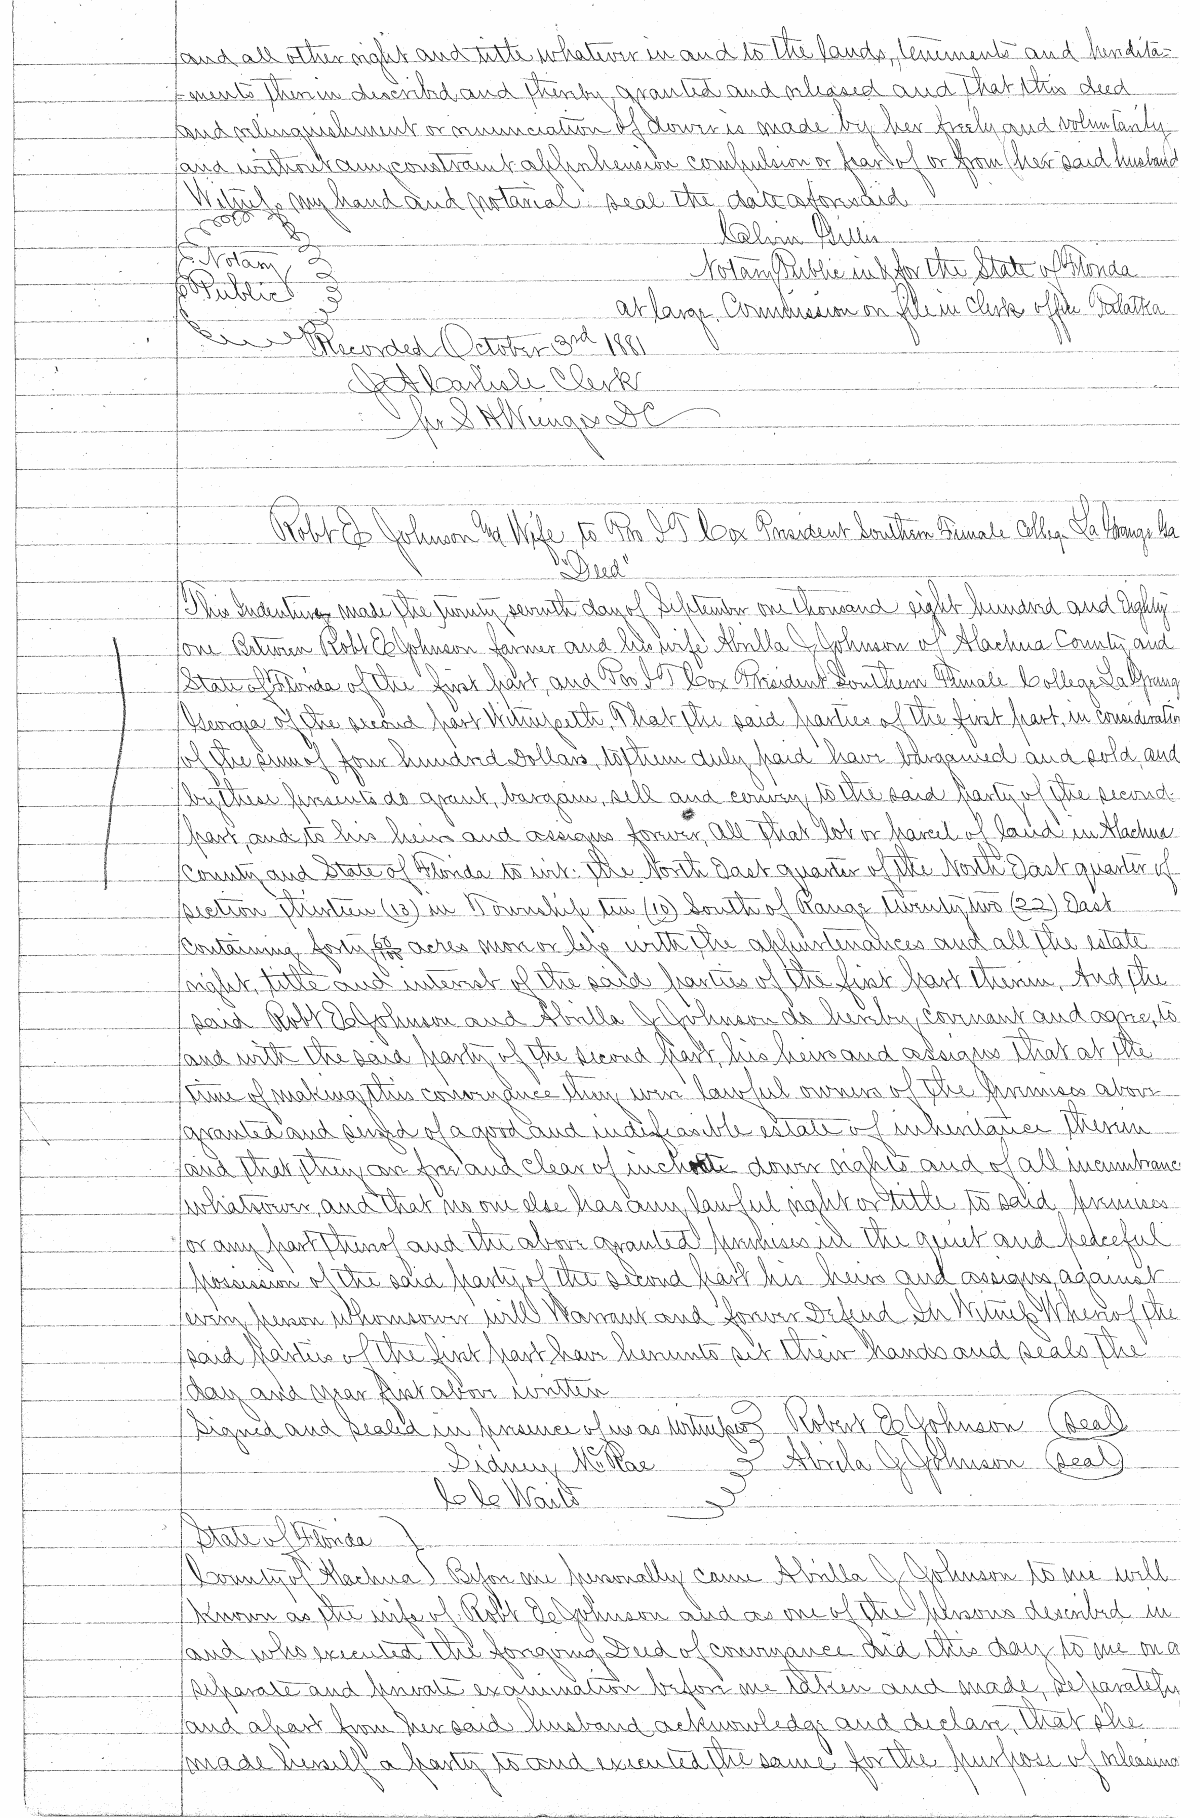 and all other right and title whatever in and to the lands, tenements and heredita=
=ments therein described and thereby granted and released and that this deed
and relinquishment or renunciation of dower is made by her freely and voluntarily
and without any constraint apprehension compulsion or fear of or from her said husband
Witness my hand and notarial seal the date aforesaid
Calvin Gillis
Notary
Public
Notary Public in & for the State of Florida
at large. Commission on file in Clerk office Palatka
Recorded October 3rd 1881
J A Carlisle Clerk
per S H Wienges DC
Robt E Johnson and Wife to I T Cox President Southern Female College La Grange Ga
"Deed"
This Indenture, made the twenty seventh day of September one thousand eight hundred and Eighty
one Between Robt E Johnson farmer and his wife Abrilla J Johnson of Alachua County and
State of Florida of the first part, and I T Cox President Southern Female College La Grange
Georgia of the second part Witnesseth, That the said parties of the first part, in consideration
of the sum of four hundred Dollars, to them duly paid have bargained and sold, and
by these presents do grant, bargain, sell and convey, to the said party of the second
part, and to his heirs and assigns forever, All that lot or parcel of land in Alachua
County and State of Florida to wit: the North East quarter of the North East quarter of
section thirteen (13) in Township ten (10) South of Range twenty two (22) East
containing forty acres more or less with the appurtenances and all the estate
right, title and interest of the said parties of the first part therein. And the
said Robt E Johnson and Abrilla J Johnson do hereby covenant and agree, to
and with the said party of the second part, his heirs and assigns that at the
time of making this conveyance they were lawful owners of the premises above
granted and seized of a good and indefeasible estate of inheritance therein
and that, they are free and clear of inchoate dower rights and of all incumbrance
whatsoever, and that no one else has any lawful right or title to said premises
or any part thereof and the above granted premises in the quiet and peaceful
possession of the said party of the second part his heirs and assigns, against
every person whomsoever will Warrant and forever Defend In Witness Whereof the
said parties of the first part have hereunto set their hands and seals the
day and year first above written
Signed and sealed in presence of us as witnesses Robert E Johnson (seal)
Sidney McRae Abrila J Johnson (seal)
C C Waits
State of Florida }
County of Alachua } Before me personally came Abrilla J Johnson to me well
known as the wife of Robt E Johnson and as one of the persons described in
and who executed the foregoing Deed of conveyance did this day to me on a
separate and private examination before me taken and made, separately
and apart from her said husband acknowledge and declare, that she
made herself a party to and executed the same for the purpose of releasing